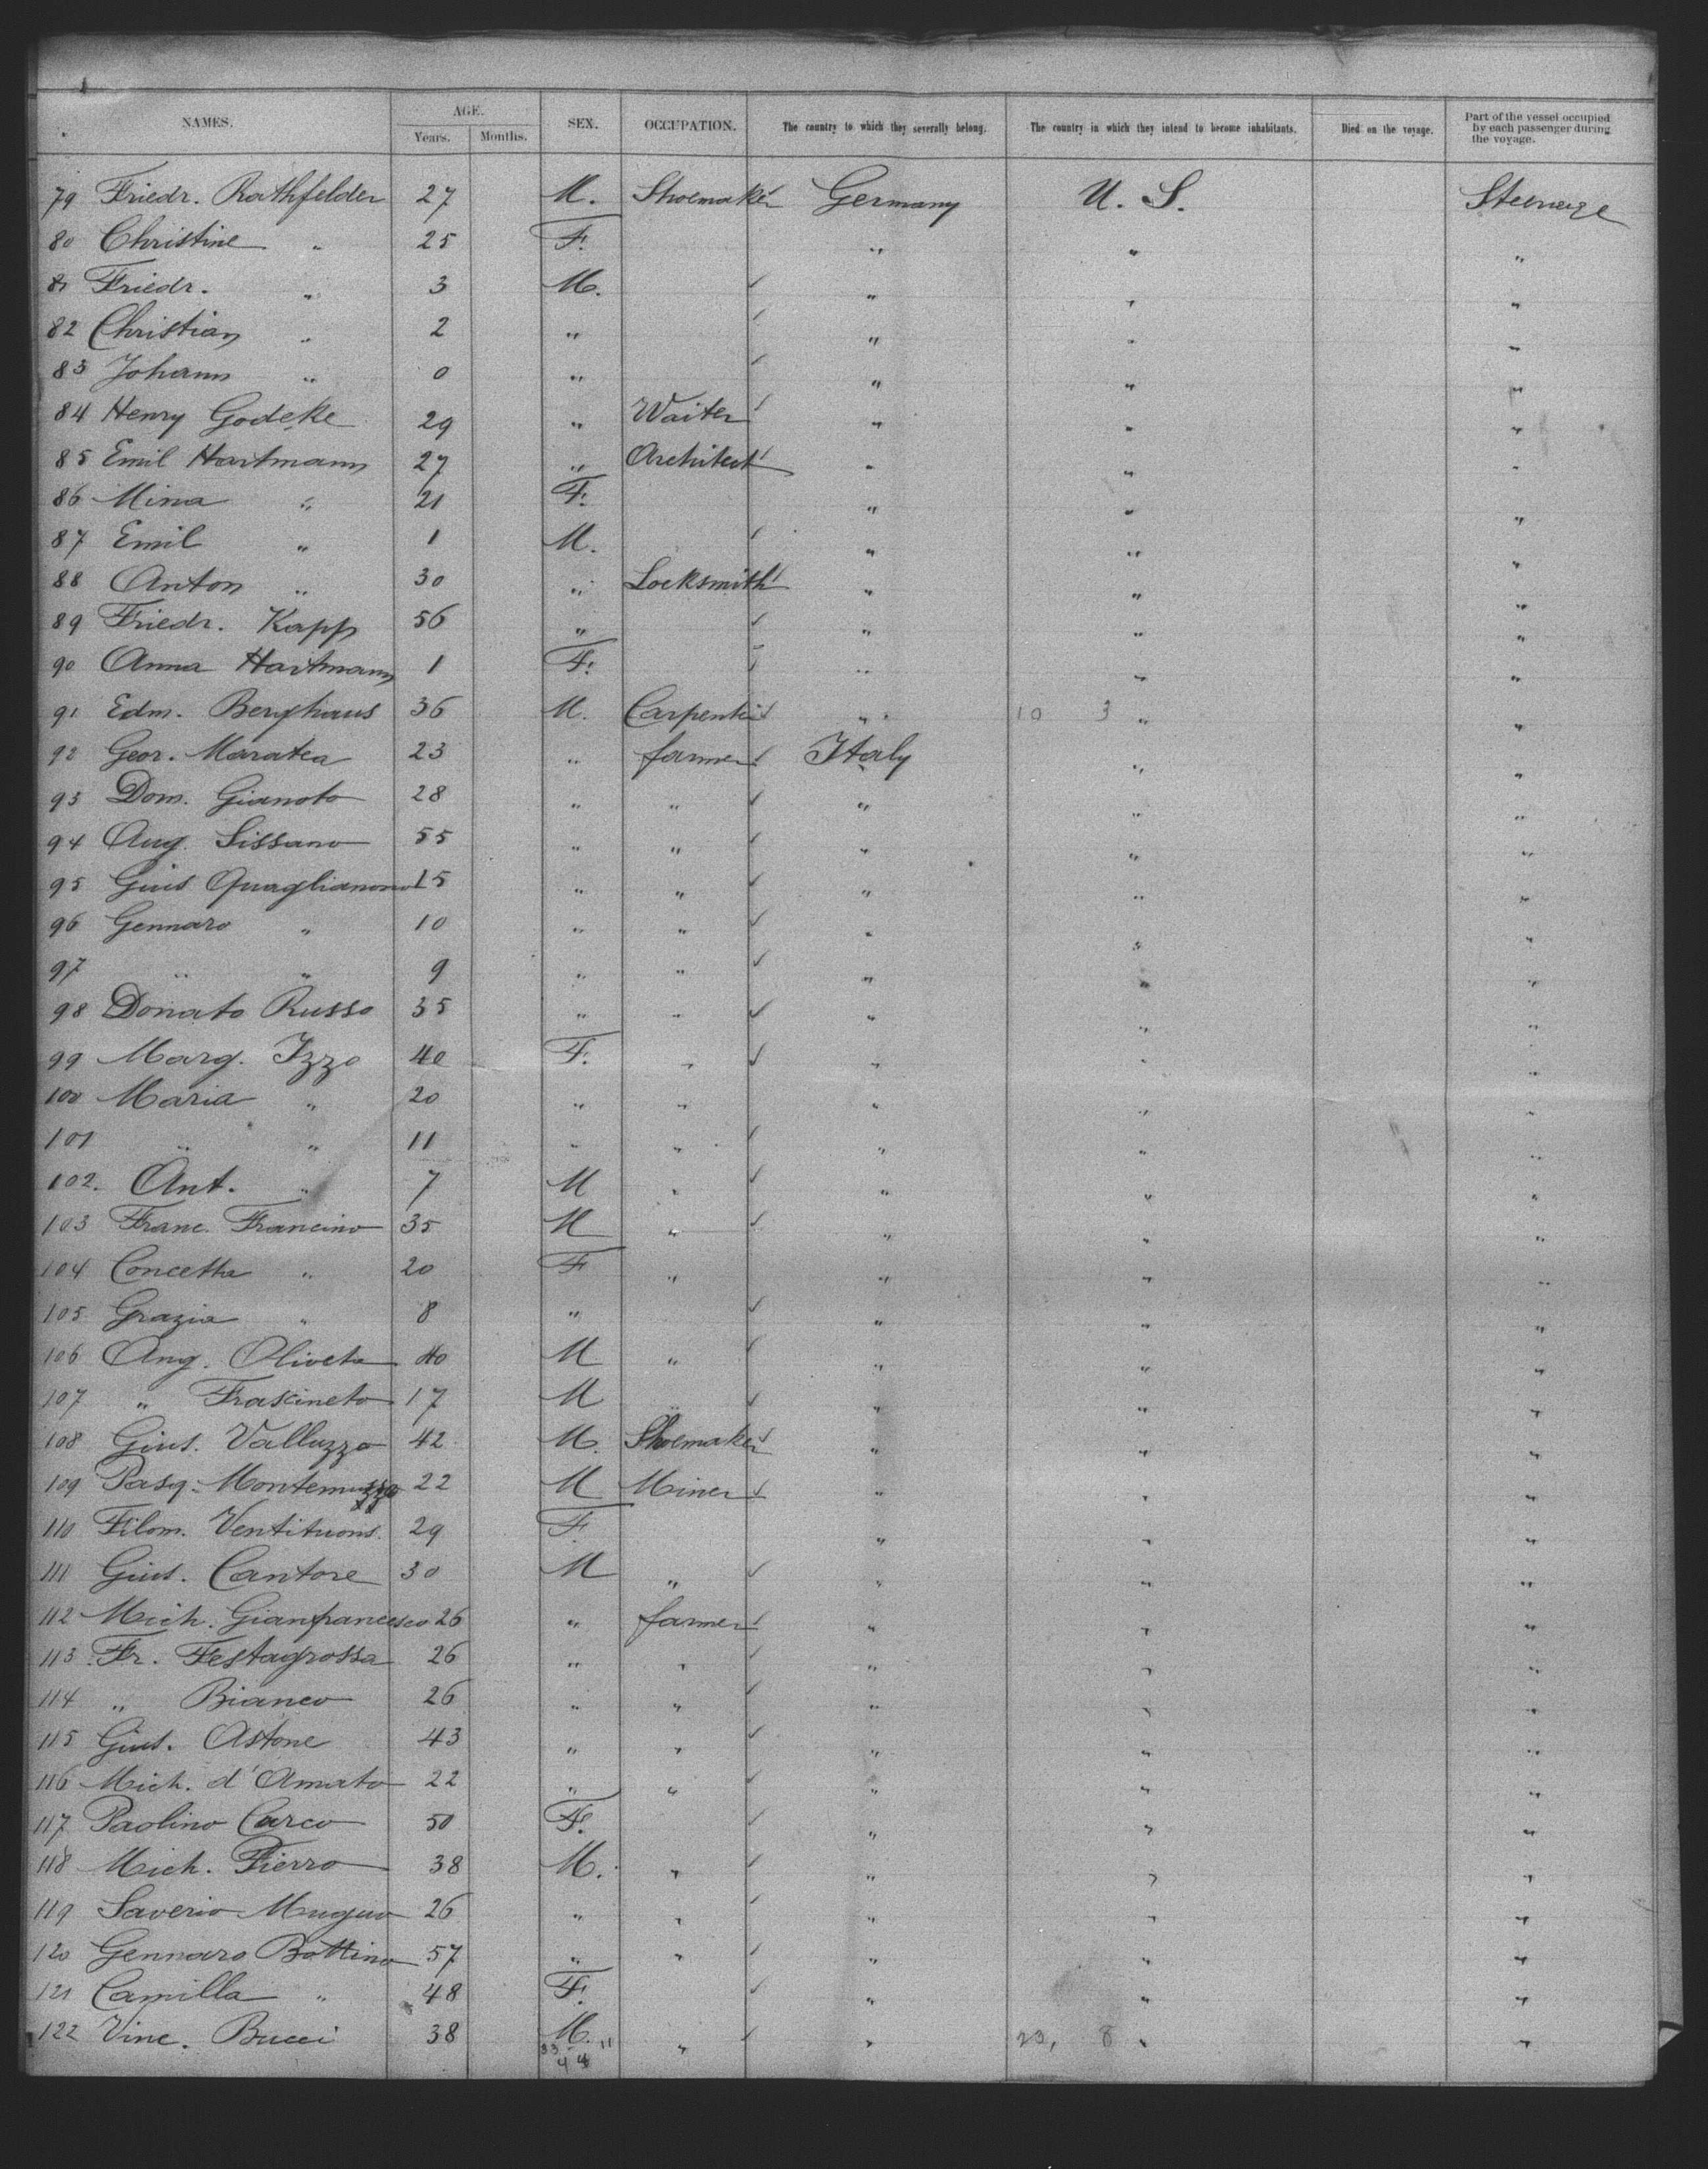 NAMES. AGE. Years. Months. SEX. OCCUPATION. The country to which they severally belong. The country in which they intend to become inhabitants. Died on the voyage. Part of the vessel occupied by each passenger during the voyage.
79 Friedr. Rathfelder 27 M. Shoemaker Germany U. S. Steerage
80 Christine " 25 F. " " "
81 Friedr. " 3 M. " " "
82 Christian " 2 " " " "
83 Johann " 0 " " " "
84 Henry Godeke 29 " Waiter " " "
85 Emil Hartmann 27 " Architect " " "
86 Mina " 21 F. " " "
87 Emil " 1 M. " " "
88 Anton " 30 " Locksmith " " "
89 Friedr. Kapp 56 " " " "
90 Anna Hartmann 1 F. " " "
91 Edm. Berghaus 36 M. Carpenter " 10 3 " "
92 Geor. Maratea 23 " farmer Italy " "
93 Dom. Gianoto 28 " " " " "
94 Aug. Sissano 55 " " " " "
95 Gius Quaglianono 15 " " " " "
96 Gennaro " 10 " " " " "
97 " " 9 " " " " "
98 Donato Russo 35 " " " " "
99 Marg. Izzo 40 F. " " " "
100 Maria " 20 " " " " "
101 " " 11 " " " " "
102. Ant. " 7 M " " " "
103 Franc. Francino 35 M " " " "
104 Concetta " 20 F " " " "
105 Grazia " 8 " " " "
106 Ang. Oliveto 40 M " " " "
107 " Frascineto 17 M " " " "
108 Gius. Valluzzo 42 M. Shoemaker " " "
109 Pasq. Montemuzzo 22 M Miner " " "
110 Filom. Ventituoris. 29 F. " " "
111 Gius. Cantore 30 M " " " "
112 Mich. Gianfrancesco 26 " farmer " " "
113 Fr. Festagrossa 26 " " " " "
114 " Bianco 26 " " " " "
115 Gius. Astone 43 " " " " "
116 Mich. d'Amato 22 " " " " "
117 Paolino Curco 50 F. " " "
118 Mich. Fierro 38 M. " " " "
119 Saverio Muguo 26 " " " " "
120 Gennaro Bottino 57 " " " " "
121 Camilla " 48 F. " " "
122 Vinc. Bucci 38 M. " " 23, 8 " "
33 11
44